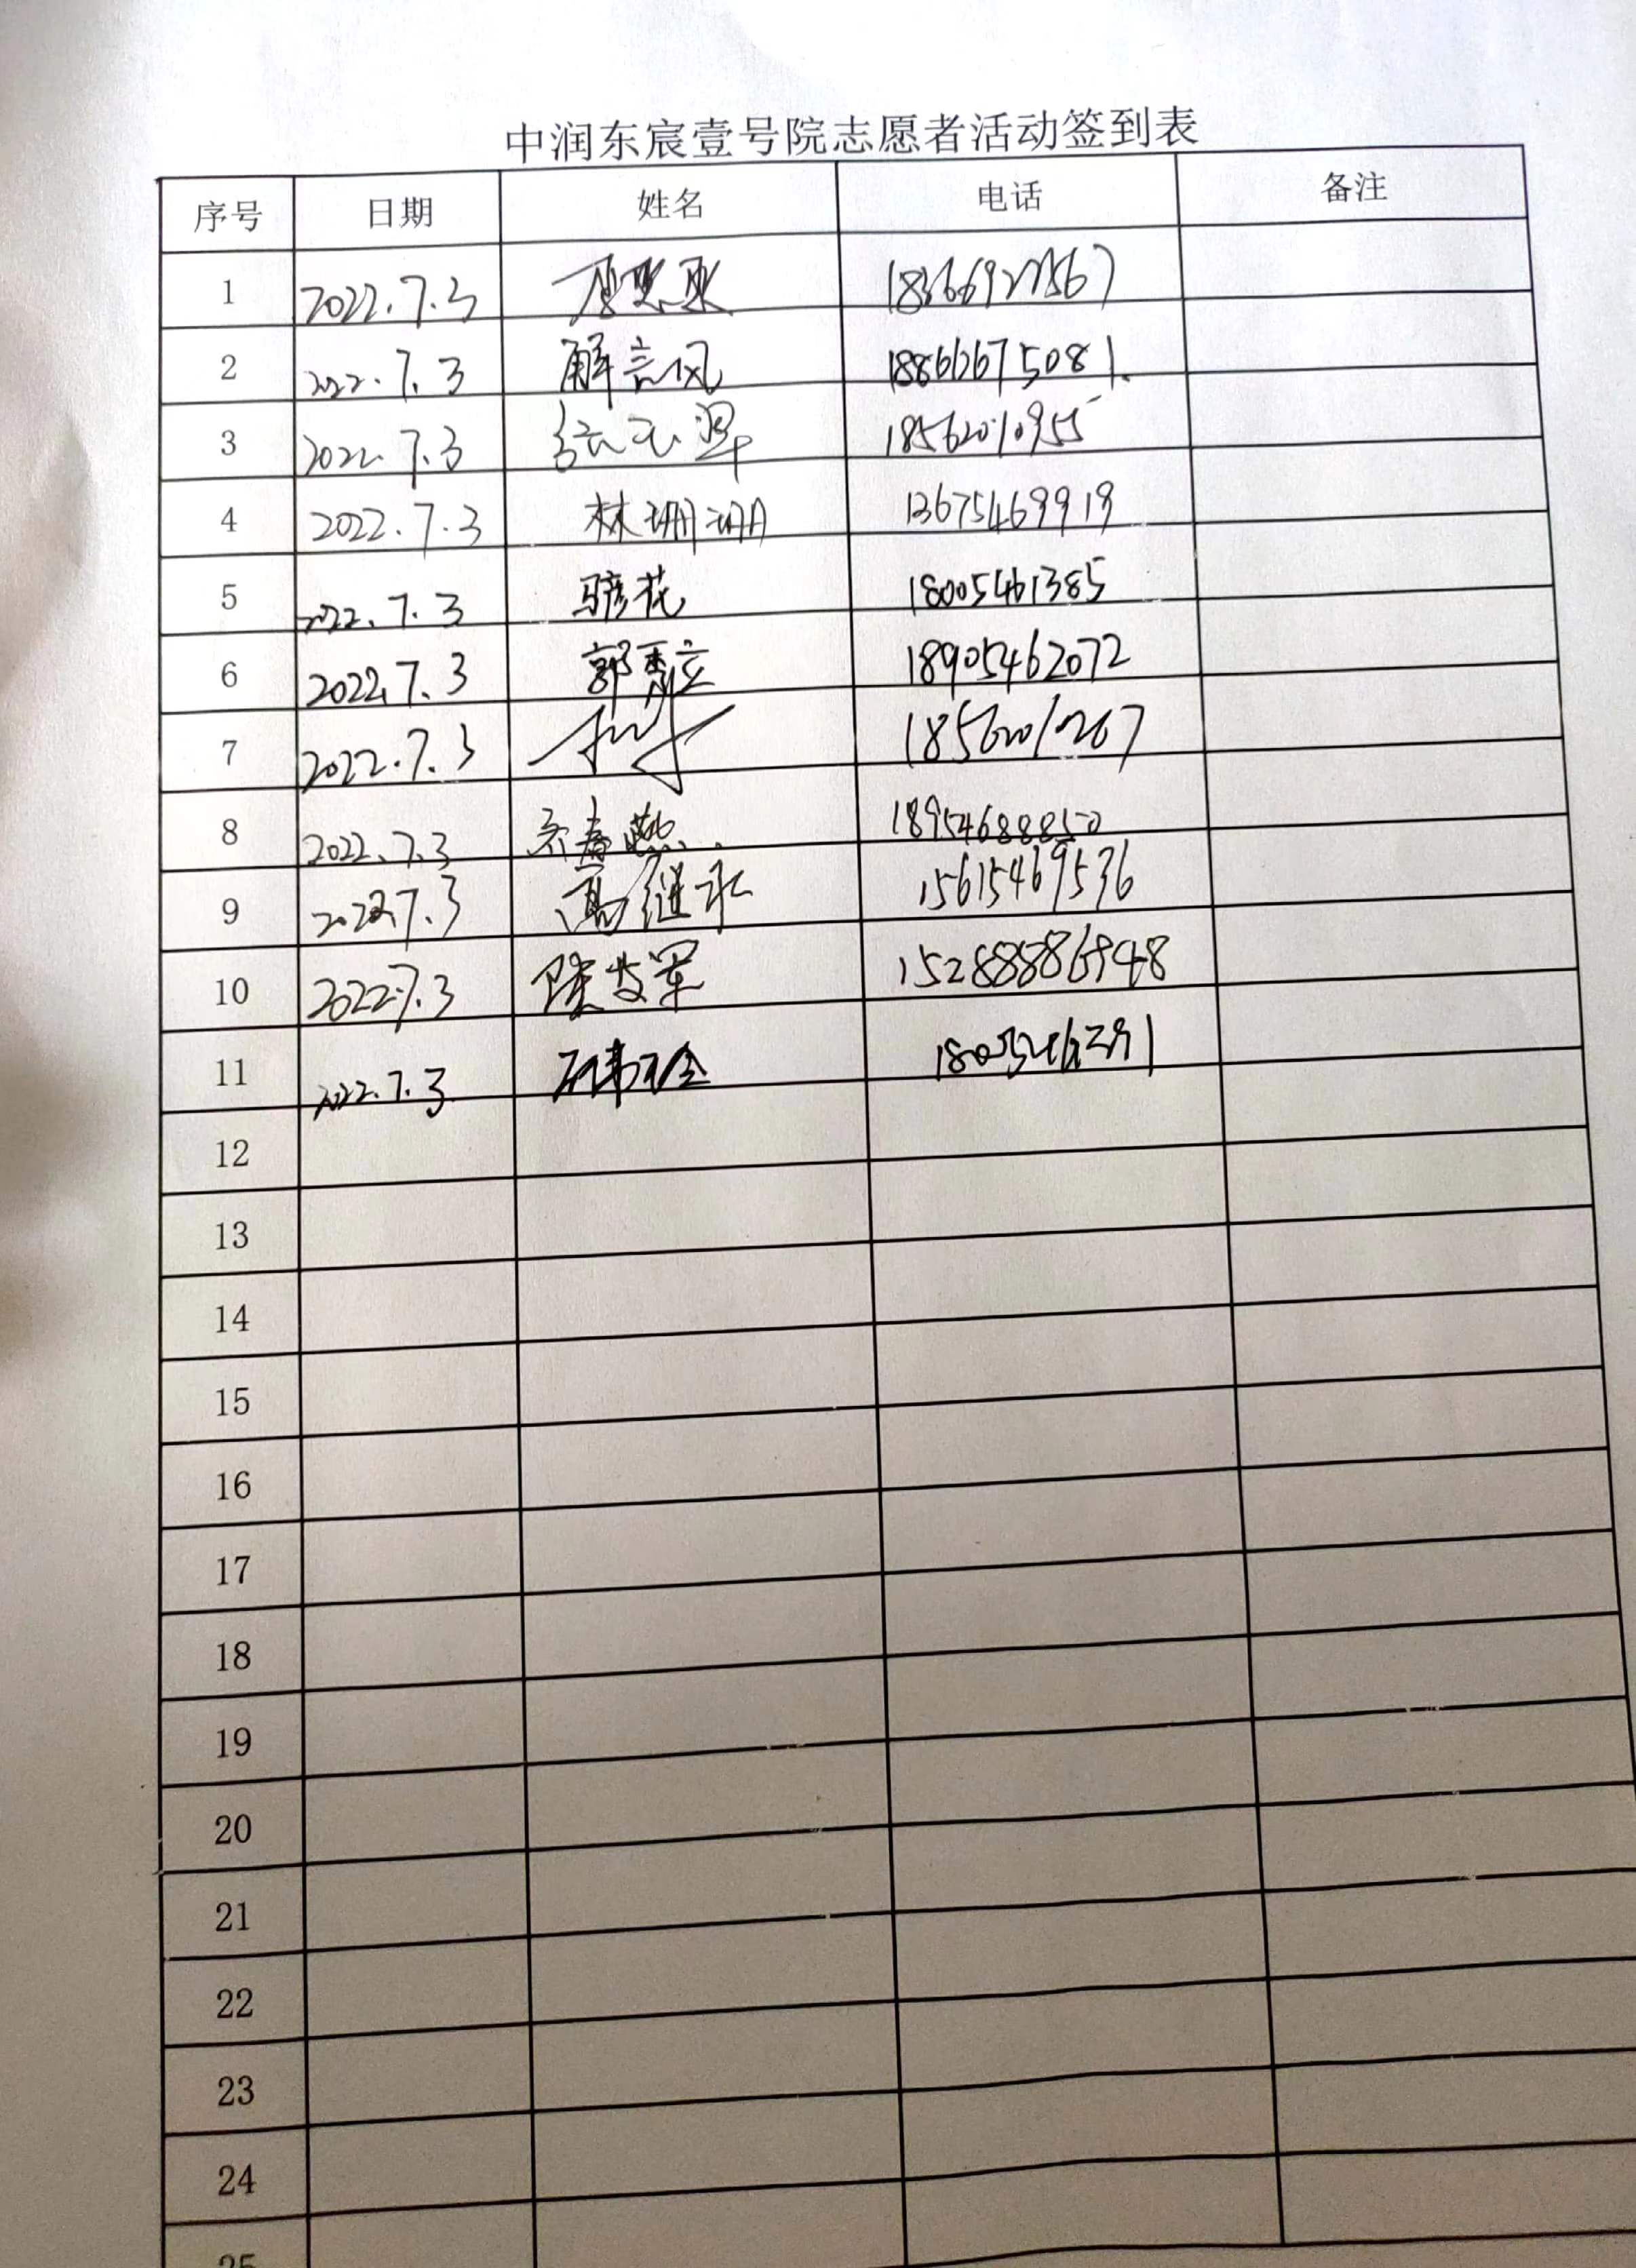 中润东宸壹号院志愿者活动签到表
序号 日期 姓名 电话 备注
1 2022.7.3
2 2022.7.3 解言风 188662675081.
3 2022.7.3 18562010955
4 2022.7.3 林珊珊 13675469919
5 2022.7.3 18005461385
6 2022.7.3 郭秀立 18905462072
7 2022.7.3
8 2022.7.3 齐春燕 18954688850
9 2022.7.3 高继永 15615469536
10 2022.7.3 陆发军
11 2022.7.3
12
13
14
15
16
17
18
19
20
21
22
23
24
25